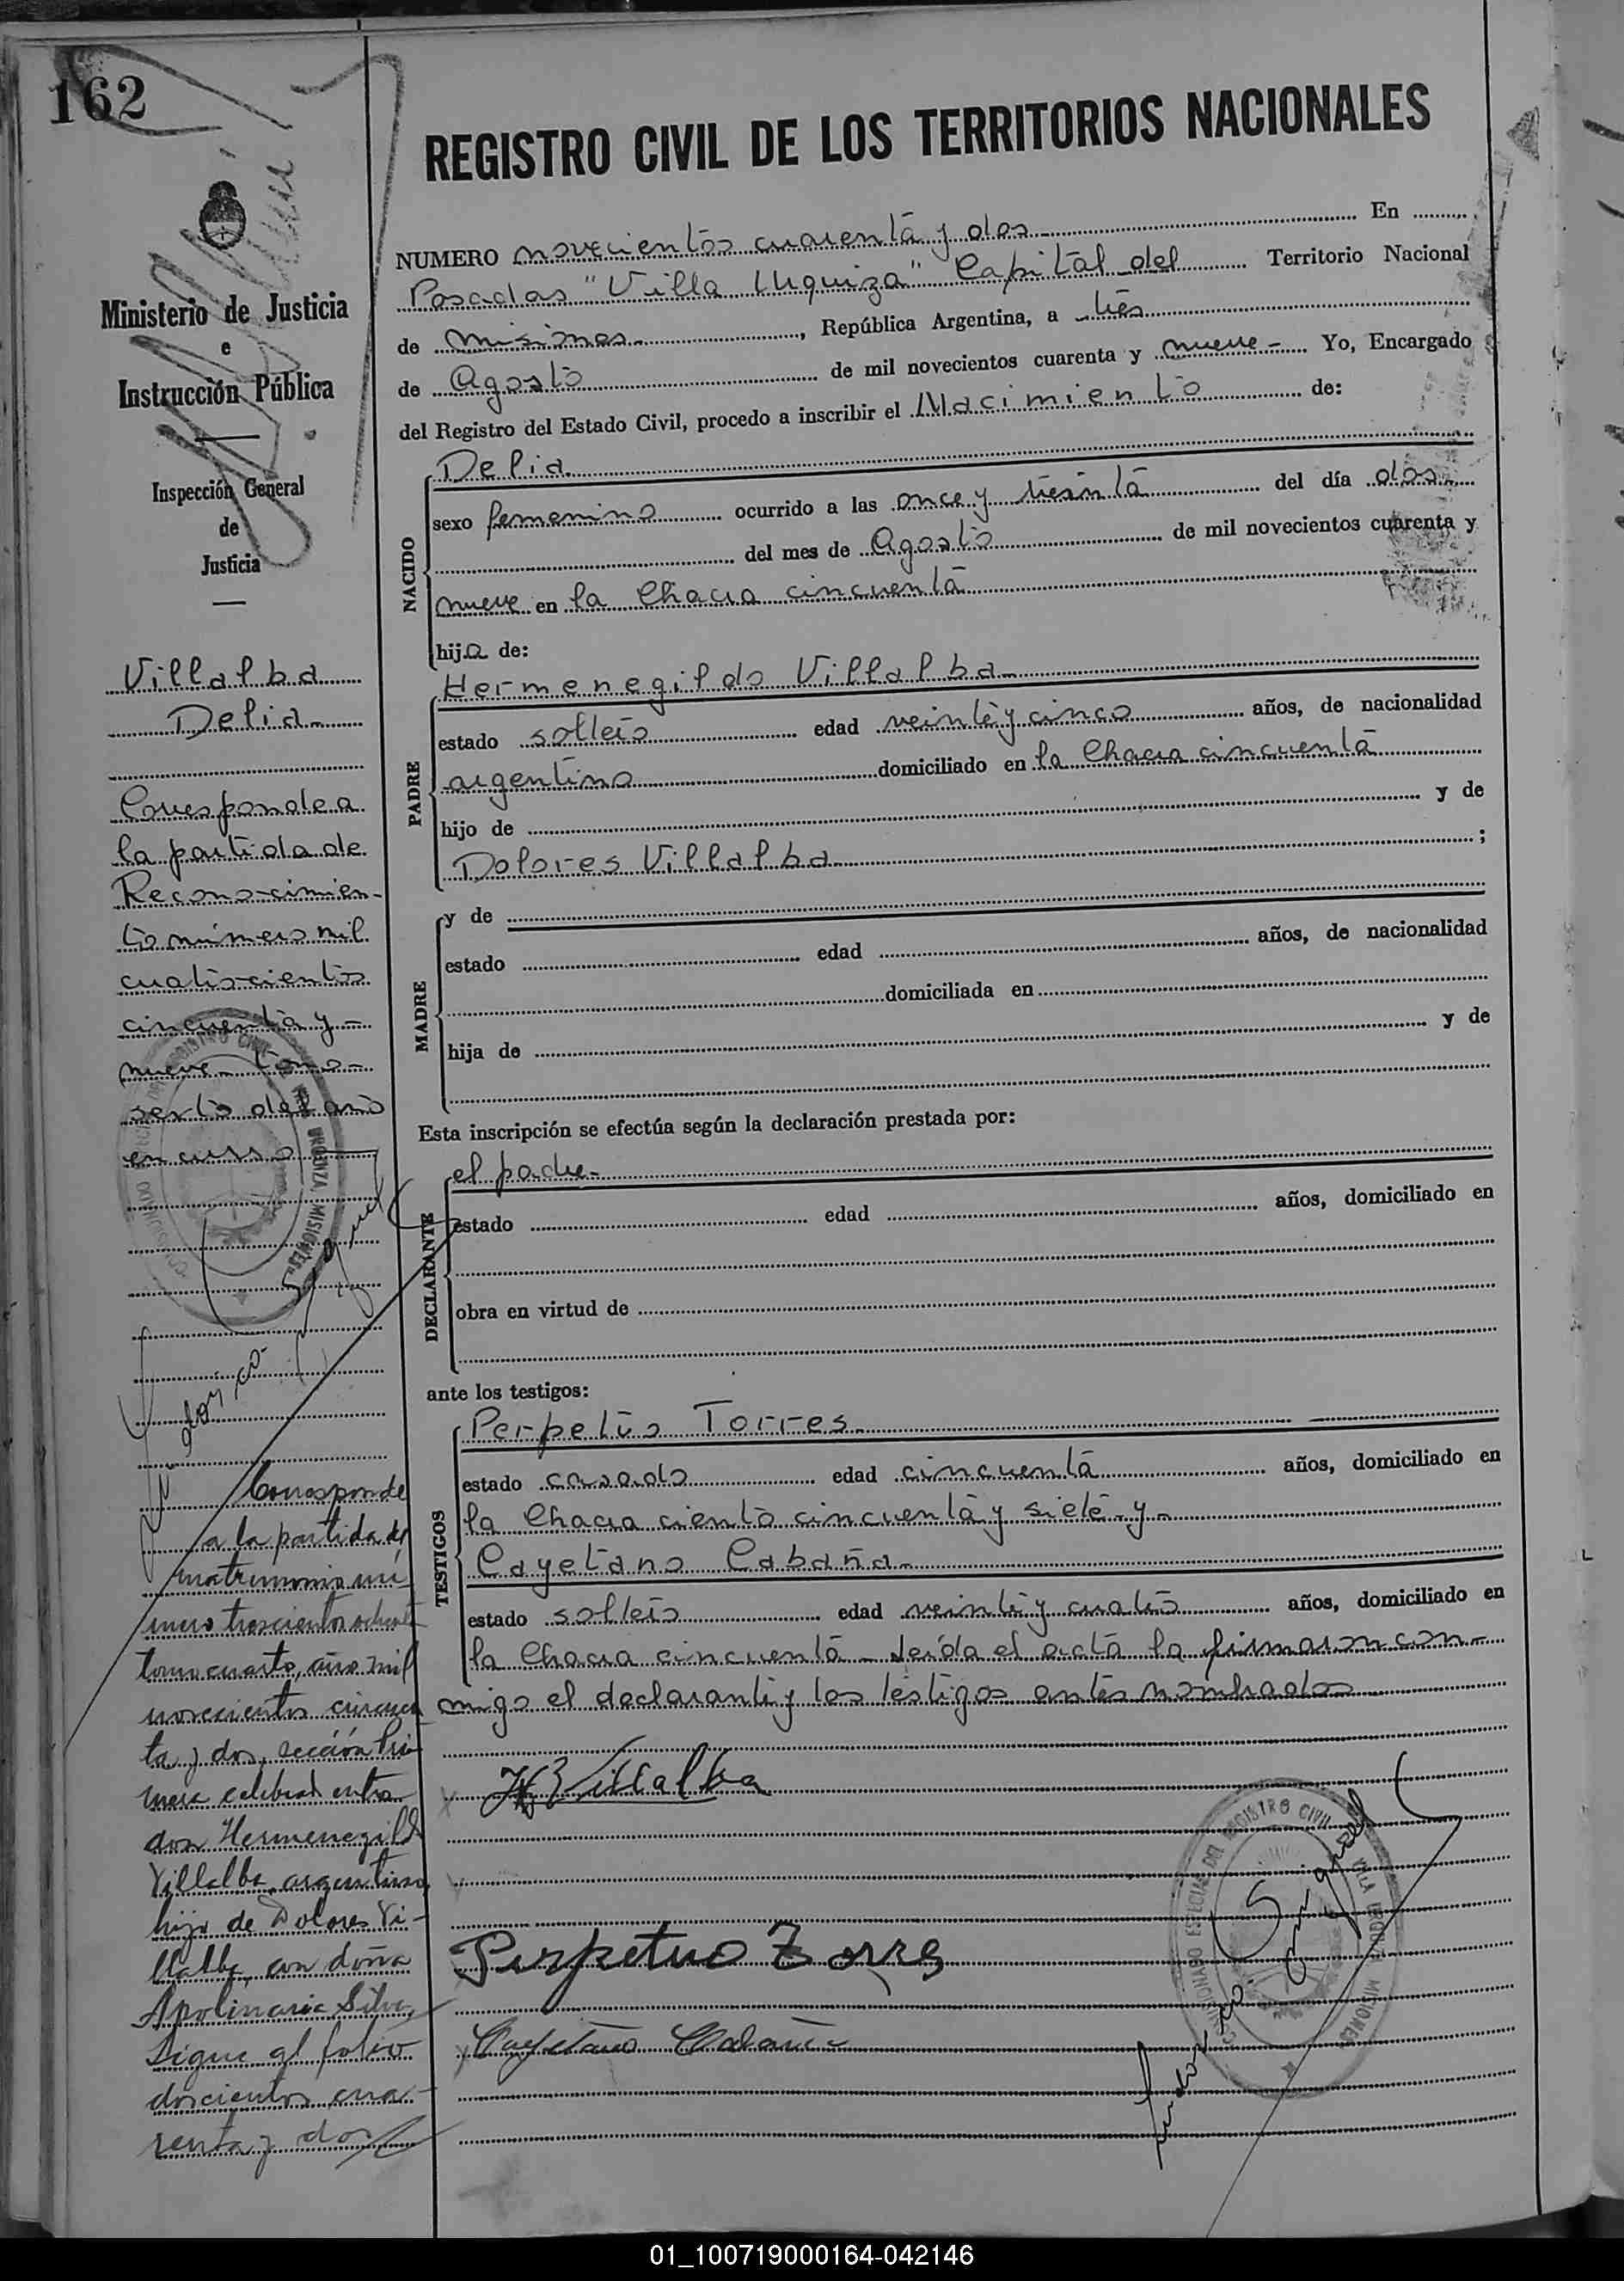 162
REGISTRO CIVIL DE LOS TERRITORIOS NACIONALES
Ministerio de Justicia
e
Instrucción Pública
Inspección General
de
Justicia
Villalba
Delia
Corresponde a
la partida de
Reconocimien-
to número mil
cuatrocientos
cincuenta y
nueve tomo
sexto del año
en curso
Corresponde
a la partida de
matrimonio nú
mero trescientos ochenta
tomo cuarto, año mil
novecientos cincuen
ta y dos, sección Pri
mera celebrad entre
don Hermenegildo
Villalba, argentino,
hijo de Dolores Vi-
llalba, con doña
Apolinaria Silva,
Sigue al folio
doscientos cua-
renta y dos
NUMERO novecientos cuarenta y dos En
Posadas "Villa Urquiza" Capital del Territorio Nacional
de Misiones, República Argentina, a tres
de Agosto de mil novecientos cuarenta y nueve Yo, Encargado
del Registro del Estado Civil, procedo a inscribir el Nacimiento de:
NACIDO
Delia
sexo femenino ocurrido a las once y treinta del día dos
del mes de Agosto de mil novecientos cuarenta y
nueve en la Chacra cincuenta
hija de:
PADRE
Hermenegildo Villalba
estado soltero edad veinte y cinco años, de nacionalidad
argentino domiciliado en la Chacra cincuenta
hijo de y de
Dolores Villalba ;
MADRE
y de
estado edad años, de nacionalidad
domiciliada en
hija de y de
Esta inscripción se efectúa según la declaración prestada por:
DECLARANTE
el padre
estado edad años, domiciliado en
obra en virtud de
ante los testigos:
TESTIGOS
Perpetuo Torres
estado casado edad cincuenta años, domiciliado en
la Chacra ciento cincuenta y siete y
Cayetano Cabaña
estado soltero edad veinte y cuatro años, domiciliado en
la Chacra cincuenta Leída el acta la firmaron con-
migo el declarante y los testigos antes nombrados
H Villalba
Perpetuo Torres
Cayetano Cabaña
REGISTRO CIVIL
VILLA URQUIZA MISIONES
01_100719000164-042146